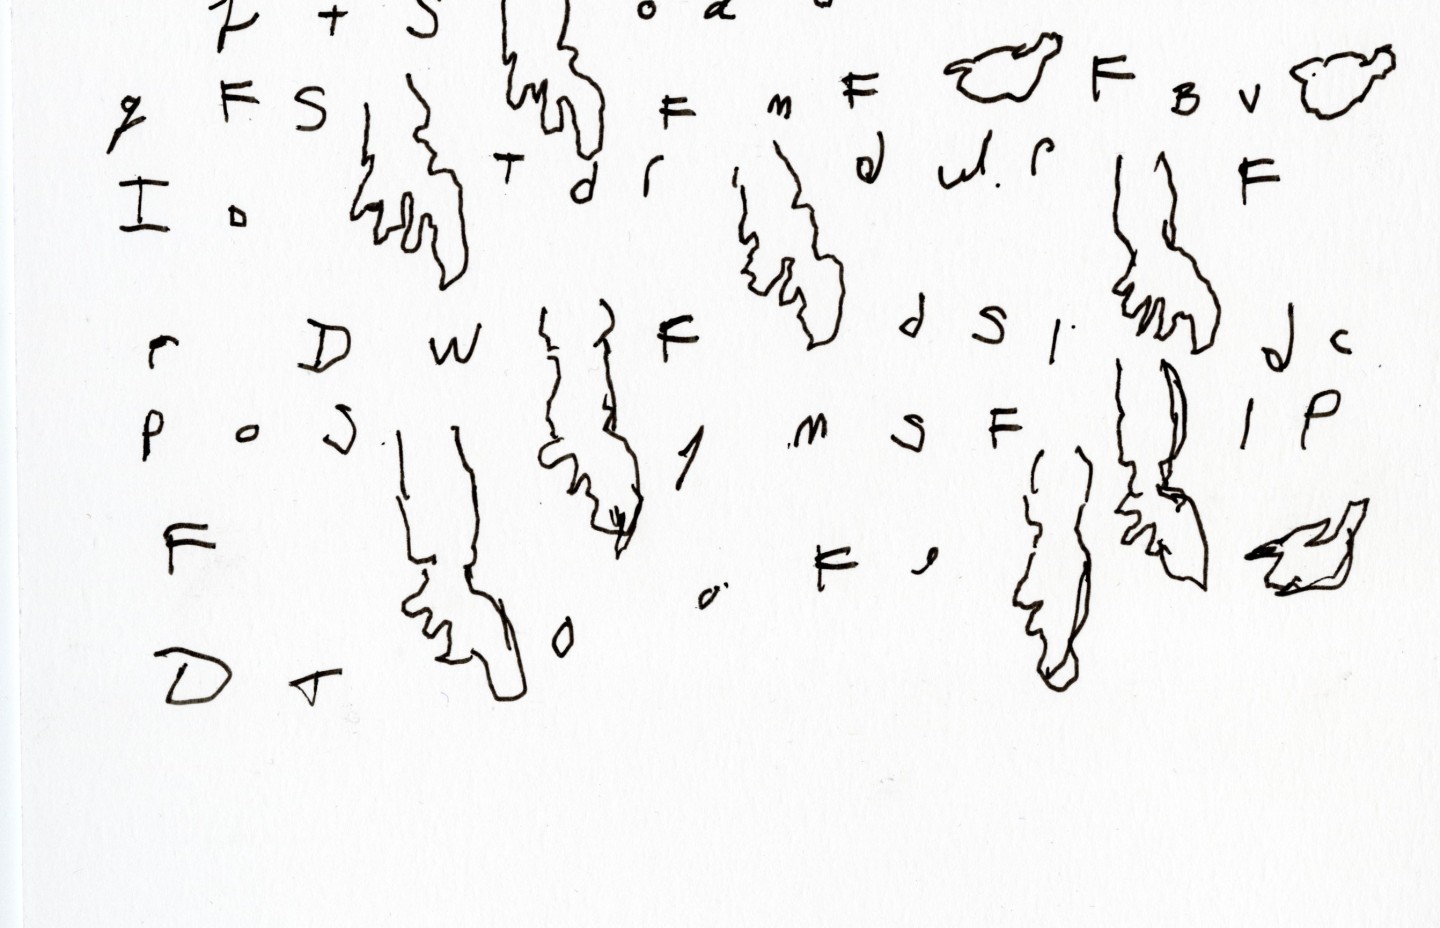 t S o a
q F S F m F F B v
I o T d r d w. r F
r D W F d S l d c
p o J 1 m S F l P
F o. F ,
D T O